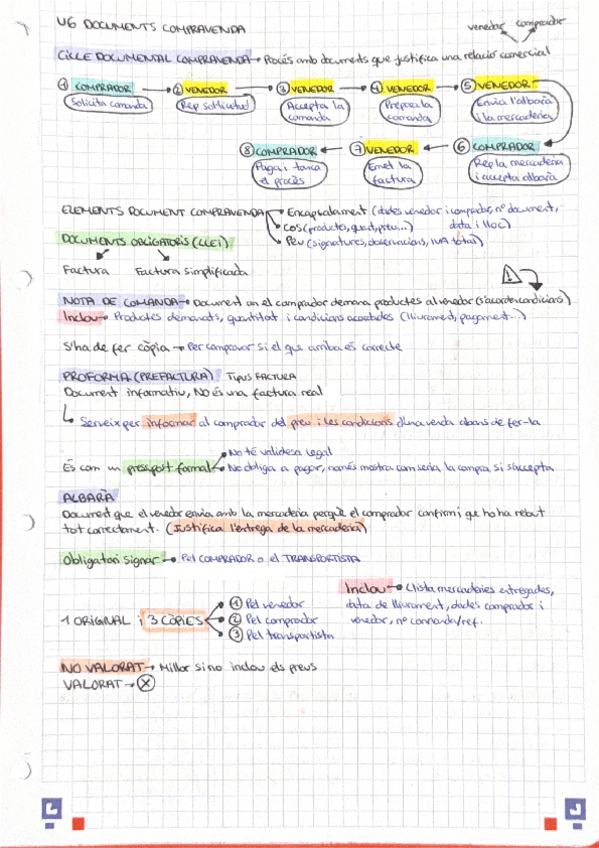 U6 DOCUMENTS COMPRAVENDA
venedor comprador
CICLE DOCUMENTAL COMPRAVENDA → Procés amb documents que justifica una relació comercial
① COMPRADOR → ② VENEDOR → ③ VENEDOR → ④ VENEDOR → ⑤ VENEDOR
Sol·licita comanda Rep sol·licitud Accepta la comanda Prepara la comanda Envia l'albarà i la mercaderia
⑧ COMPRADOR ← ⑦ VENEDOR ← ⑥ COMPRADOR
Paga i tanca el procés Emet la factura Rep la mercaderia i accepta albarà
ELEMENTS DOCUMENT COMPRAVENDA → Encapçalament (dades venedor i comprador, nº document, data i lloc)
→ Cos (productes, quant, preu...)
→ Peu (signatures, observacions, IVA total)
DOCUMENTS OBLIGATORIS (LLEI)
Factura Factura simplificada
NOTA DE COMANDA → Document on el comprador demana productes al venedor (s'acorden condicions)
Inclou → Productes demanats, quantitat i condicions acostades (lliurament, pagament...)
S'ha de fer còpia → Per comprovar si el que arriba és correcte
PROFORMA (PREFACTURA) Tipus FACTURA
Document informatiu, NO és una factura real
Serveix per informar al comprador del preu i les condicions d'una venda abans de fer-la
És com un pressupost formal → No té validesa legal
→ No obliga a pagar, només mostra com seria la compra si s'accepta
ALBARÀ
Document que el venedor envia amb la mercaderia perquè el comprador confirmi que ho ha rebut
tot correctament. (Justifica l'entrega de la mercaderia)
Obligatori signar → Pel COMPRADOR o el TRANSPORTISTA
Inclou → Llista mercaderies entregades,
data de lliurament, dades comprador i
venedor, nº comanda/ref.
1 ORIGINAL i 3 CÒPIES → ① Pel venedor
→ ② Pel comprador
→ ③ Pel transportista
NO VALORAT → Millor si no inclou els preus
VALORAT → ⓧ